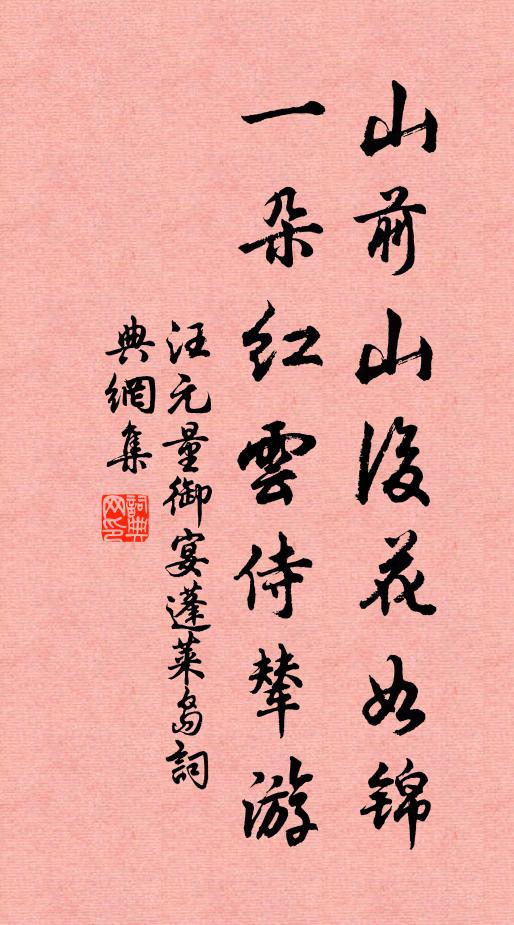 山前山後花如錦
一朵紅雲侍輦游
汪元量御宴蓬萊島詞
典網集
詞典
网印